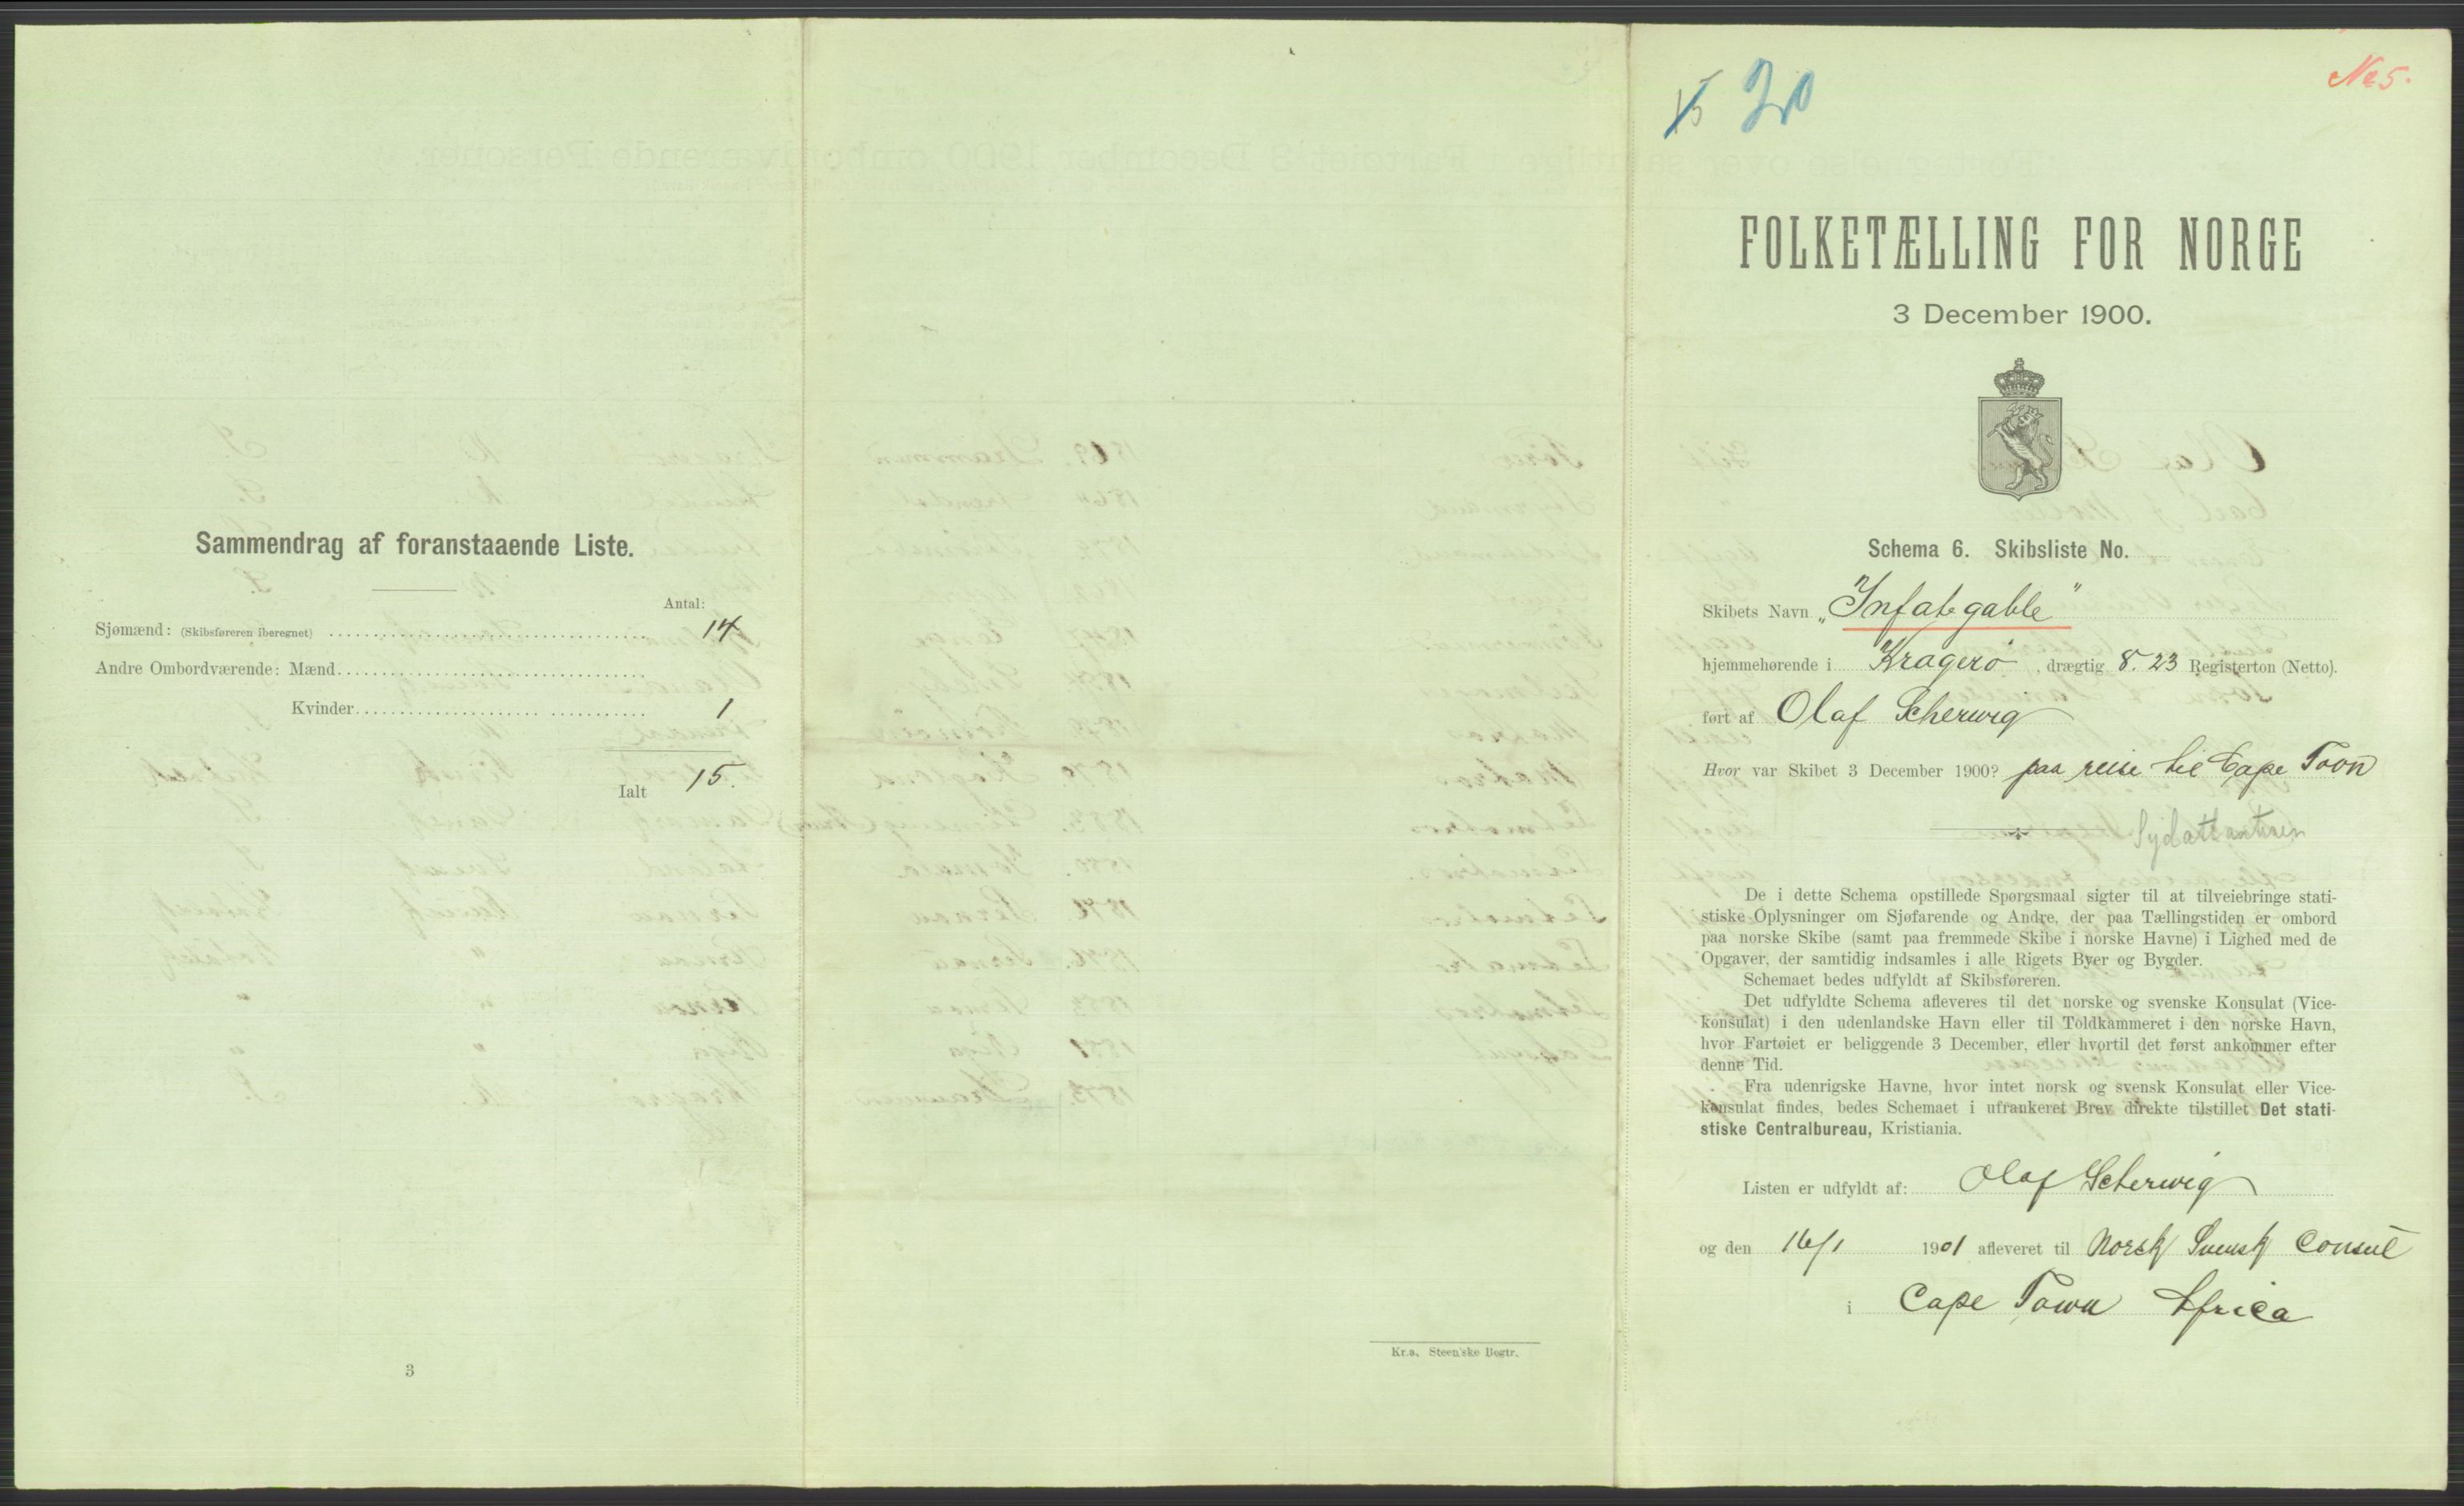 Sammendrag af foranstaaende Liste.
Antal:
Sjømænd: (Skibsføreren iberegnet) 14
Andre Ombordværende: Mænd
Kvinder 1
Ialt 15.
3
Kr.a. Steen'ske Bogtr.
20
No 5.
FOLKETÆLLING FOR NORGE
3 December 1900.
Schema 6. Skibsliste No.
Skibets Navn „Infategable"
hjemmehørende i Kragerø, drægtig 8.23 Registerton (Netto).
ført af Olaf Scherwig
Hvor var Skibet 3 December 1900? paa reise til Cape Toon
Sydatlanteren
De i dette Schema opstillede Spørgsmaal sigter til at tilveiebringe stati-
stiske Oplysninger om Sjøfarende og Andre, der paa Tællingstiden er ombord
paa norske Skibe (samt paa fremmede Skibe i norske Havne) i Lighed med de
Opgaver, der samtidig indsamles i alle Rigets Byer og Bygder.
Schemaet bedes udfyldt af Skibsføreren.
Det udfyldte Schema afleveres til det norske og svenske Konsulat (Vice-
konsulat) i den udenlandske Havn eller til Toldkammeret i den norske Havn,
hvor Fartøiet er beliggende 3 December, eller hvortil det først ankommer efter
denne Tid.
Fra udenrigske Havne, hvor intet norsk og svensk Konsulat eller Vice-
konsulat findes, bedes Schemaet i ufrankeret Brev direkte tilstillet Det stati-
stiske Centralbureau, Kristiania.
Listen er udfyldt af: Olaf Scherwig
og den 16/1 1901 afleveret til Norsk Svensk Consul
i Cape Town Africa